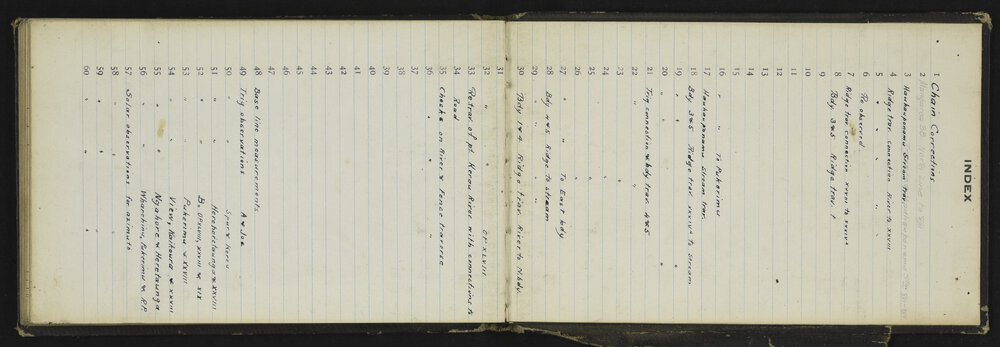 INDEX
1 Chain Corrections
2
3 Hauhaupanamu Stream trav.
4 Ridge trav. connection River to XXVIII
5 " " " "
6 Do observed
7 Ridge trav. connection XXVIII to XXXIV A
8 Bdy. 3&5 Ridge trav.
9
10
11
12 "
13
14
15
16 " " To Pukerimu
17 Hauhaupanamu Stream trav.
18 Bdy 3&5 Ridge trav. XXXIV A to Stream
19 " "
20 " "
21 Trig connection & bdy. trav. 4&5
22 "
23 " "
24
25 "
26 " "
27 " " To East bdy
28 Bdy 4&5 Ridge to stream
29 " "
30 Bdy 1&4 Ridge trav. River to N. bdy.
31
32 " Or XLVIII
33 Re trav. of pt. Kereu River with connections to
34 Road
35 Checks on River & Fence traverse
36 " " "
37
38
39
40
41
42
43
44
45
46
47
48 Base line measurements
49 Trig observations A & Joe
50 " Spur & Kereu
51 " Herepeletaunga & XXVIII
52 " B. OPSSVM, XXVIII & XIX
53 " Pukerimu & XXVIII
54 " View, Kaikoura & XXVIII
55 " Ngahore & Heretaunga
56 " Wharekino, Pukerimu & R.P.
57 Solar observations for azimuth
58 " "
59 " " "
60 " " "